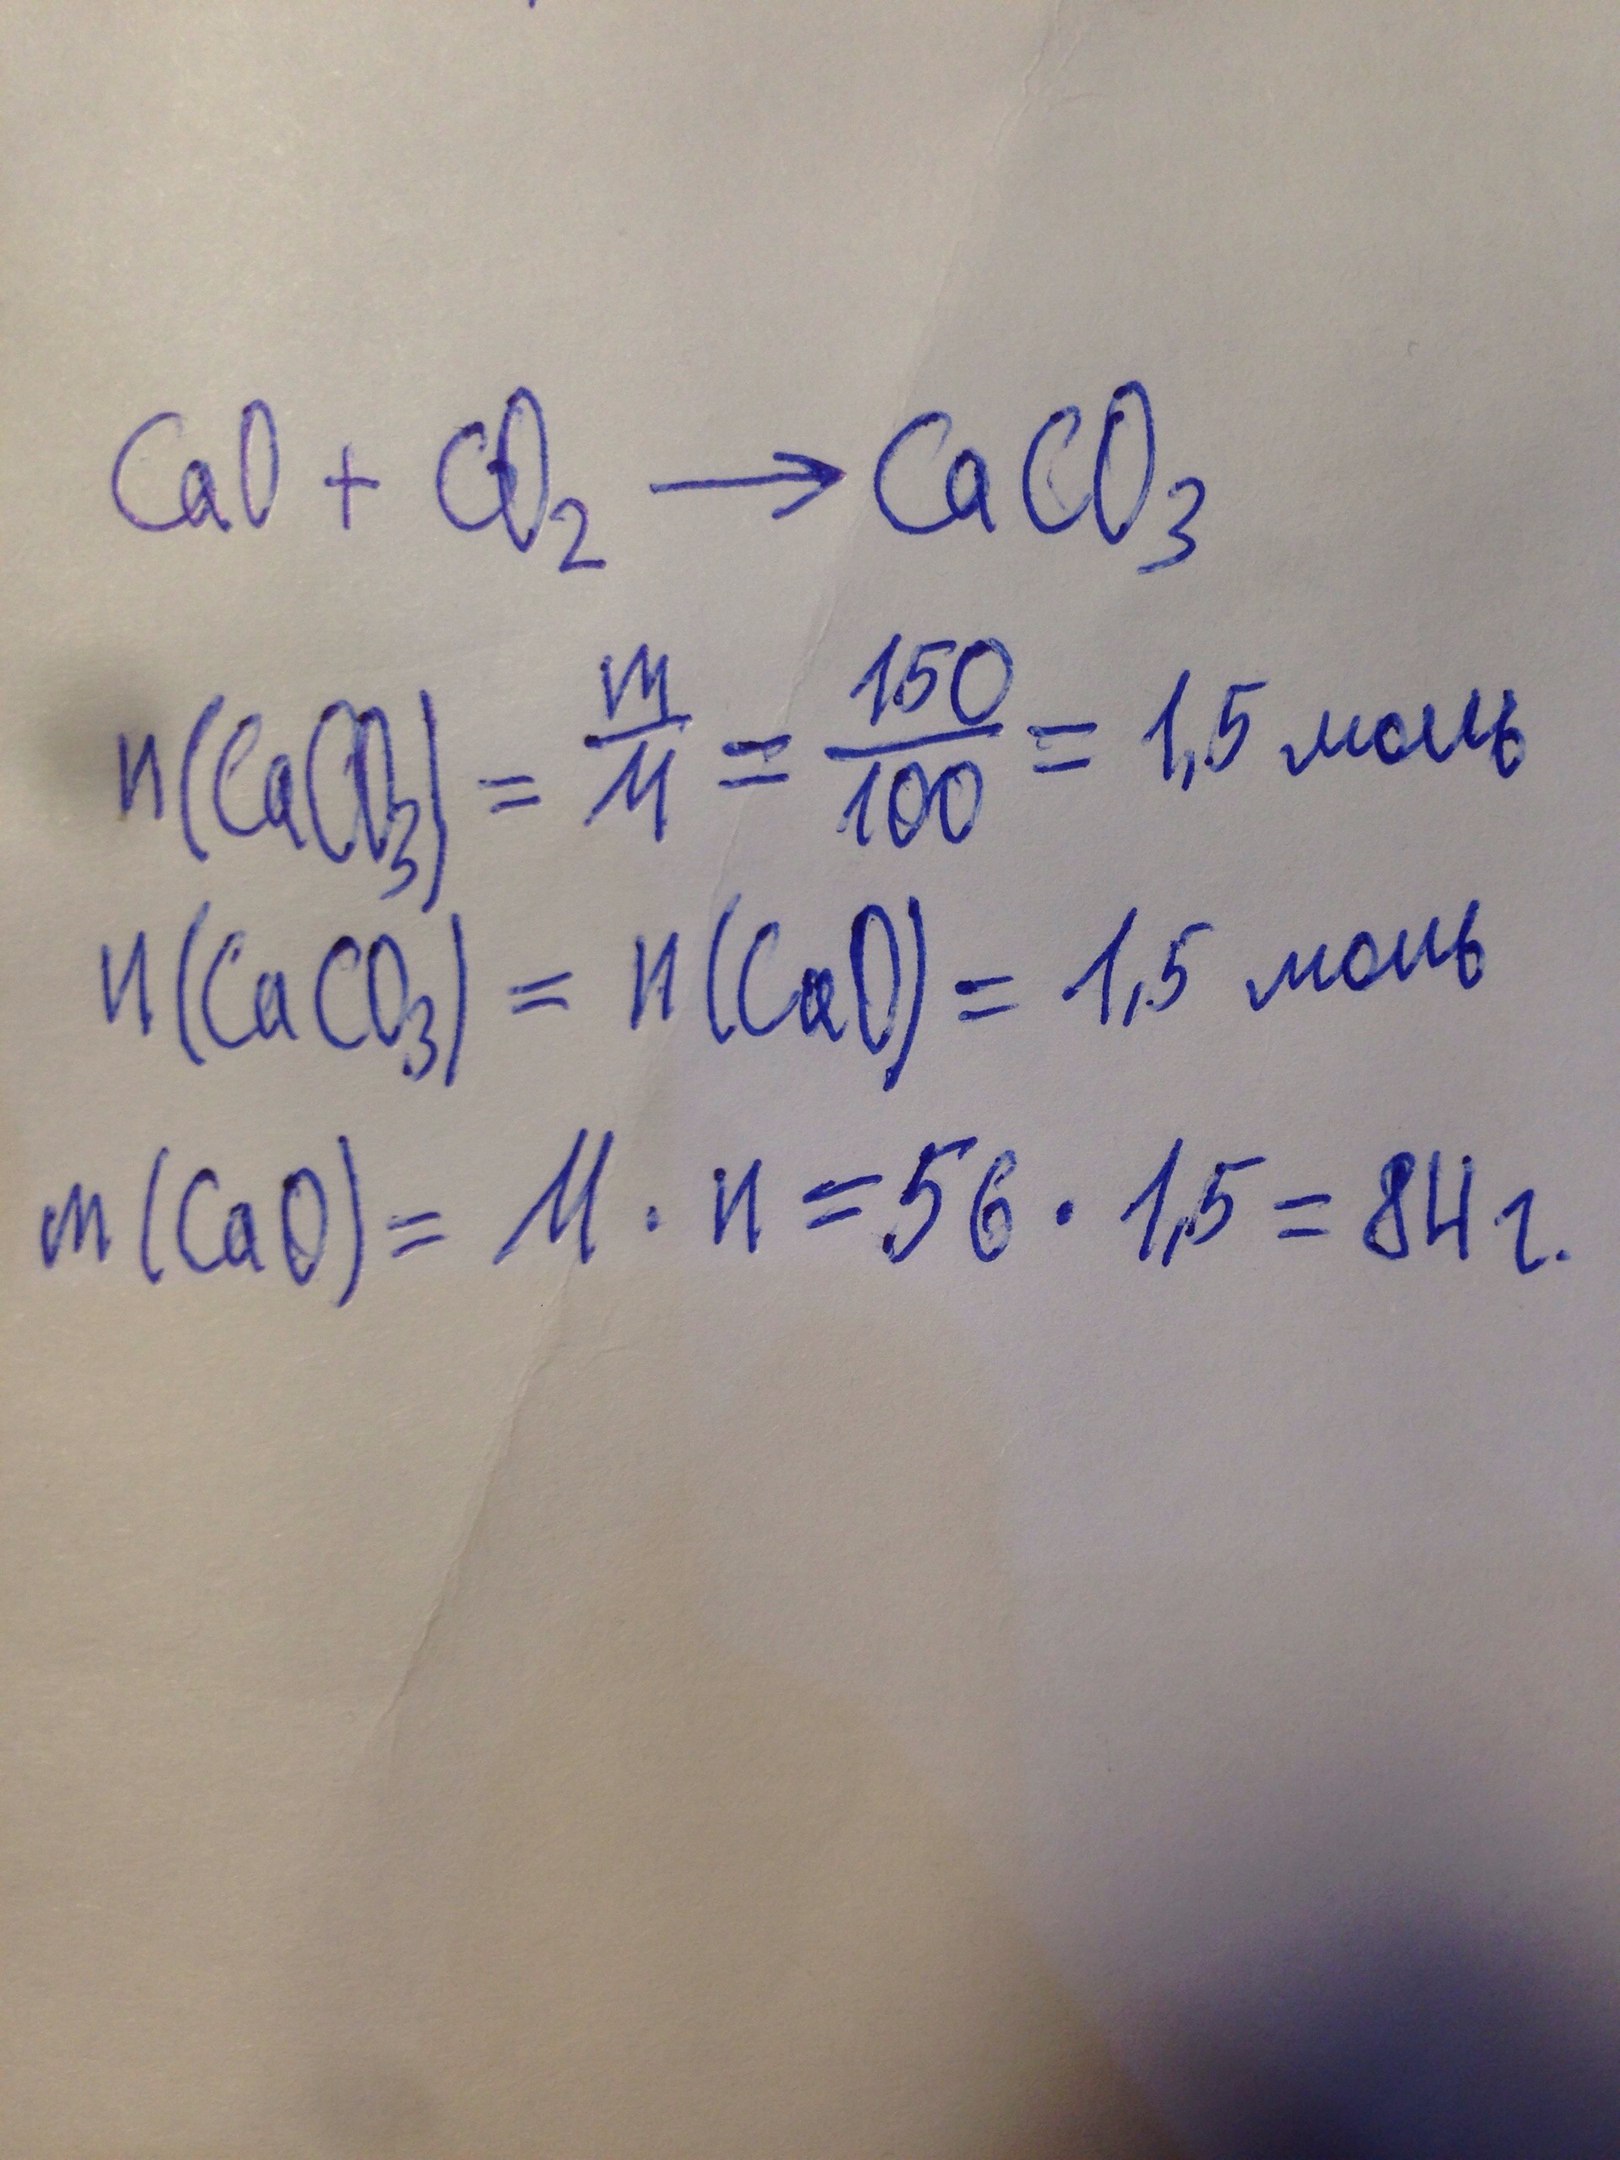 CaO + CO₂ → CaCO₃
n(CaCO₃) = m/M = 150/100 = 1,5 моль
n(CaCO₃) = n(CaO) = 1,5 моль
m(CaO) = M · n = 56 · 1,5 = 84 г.